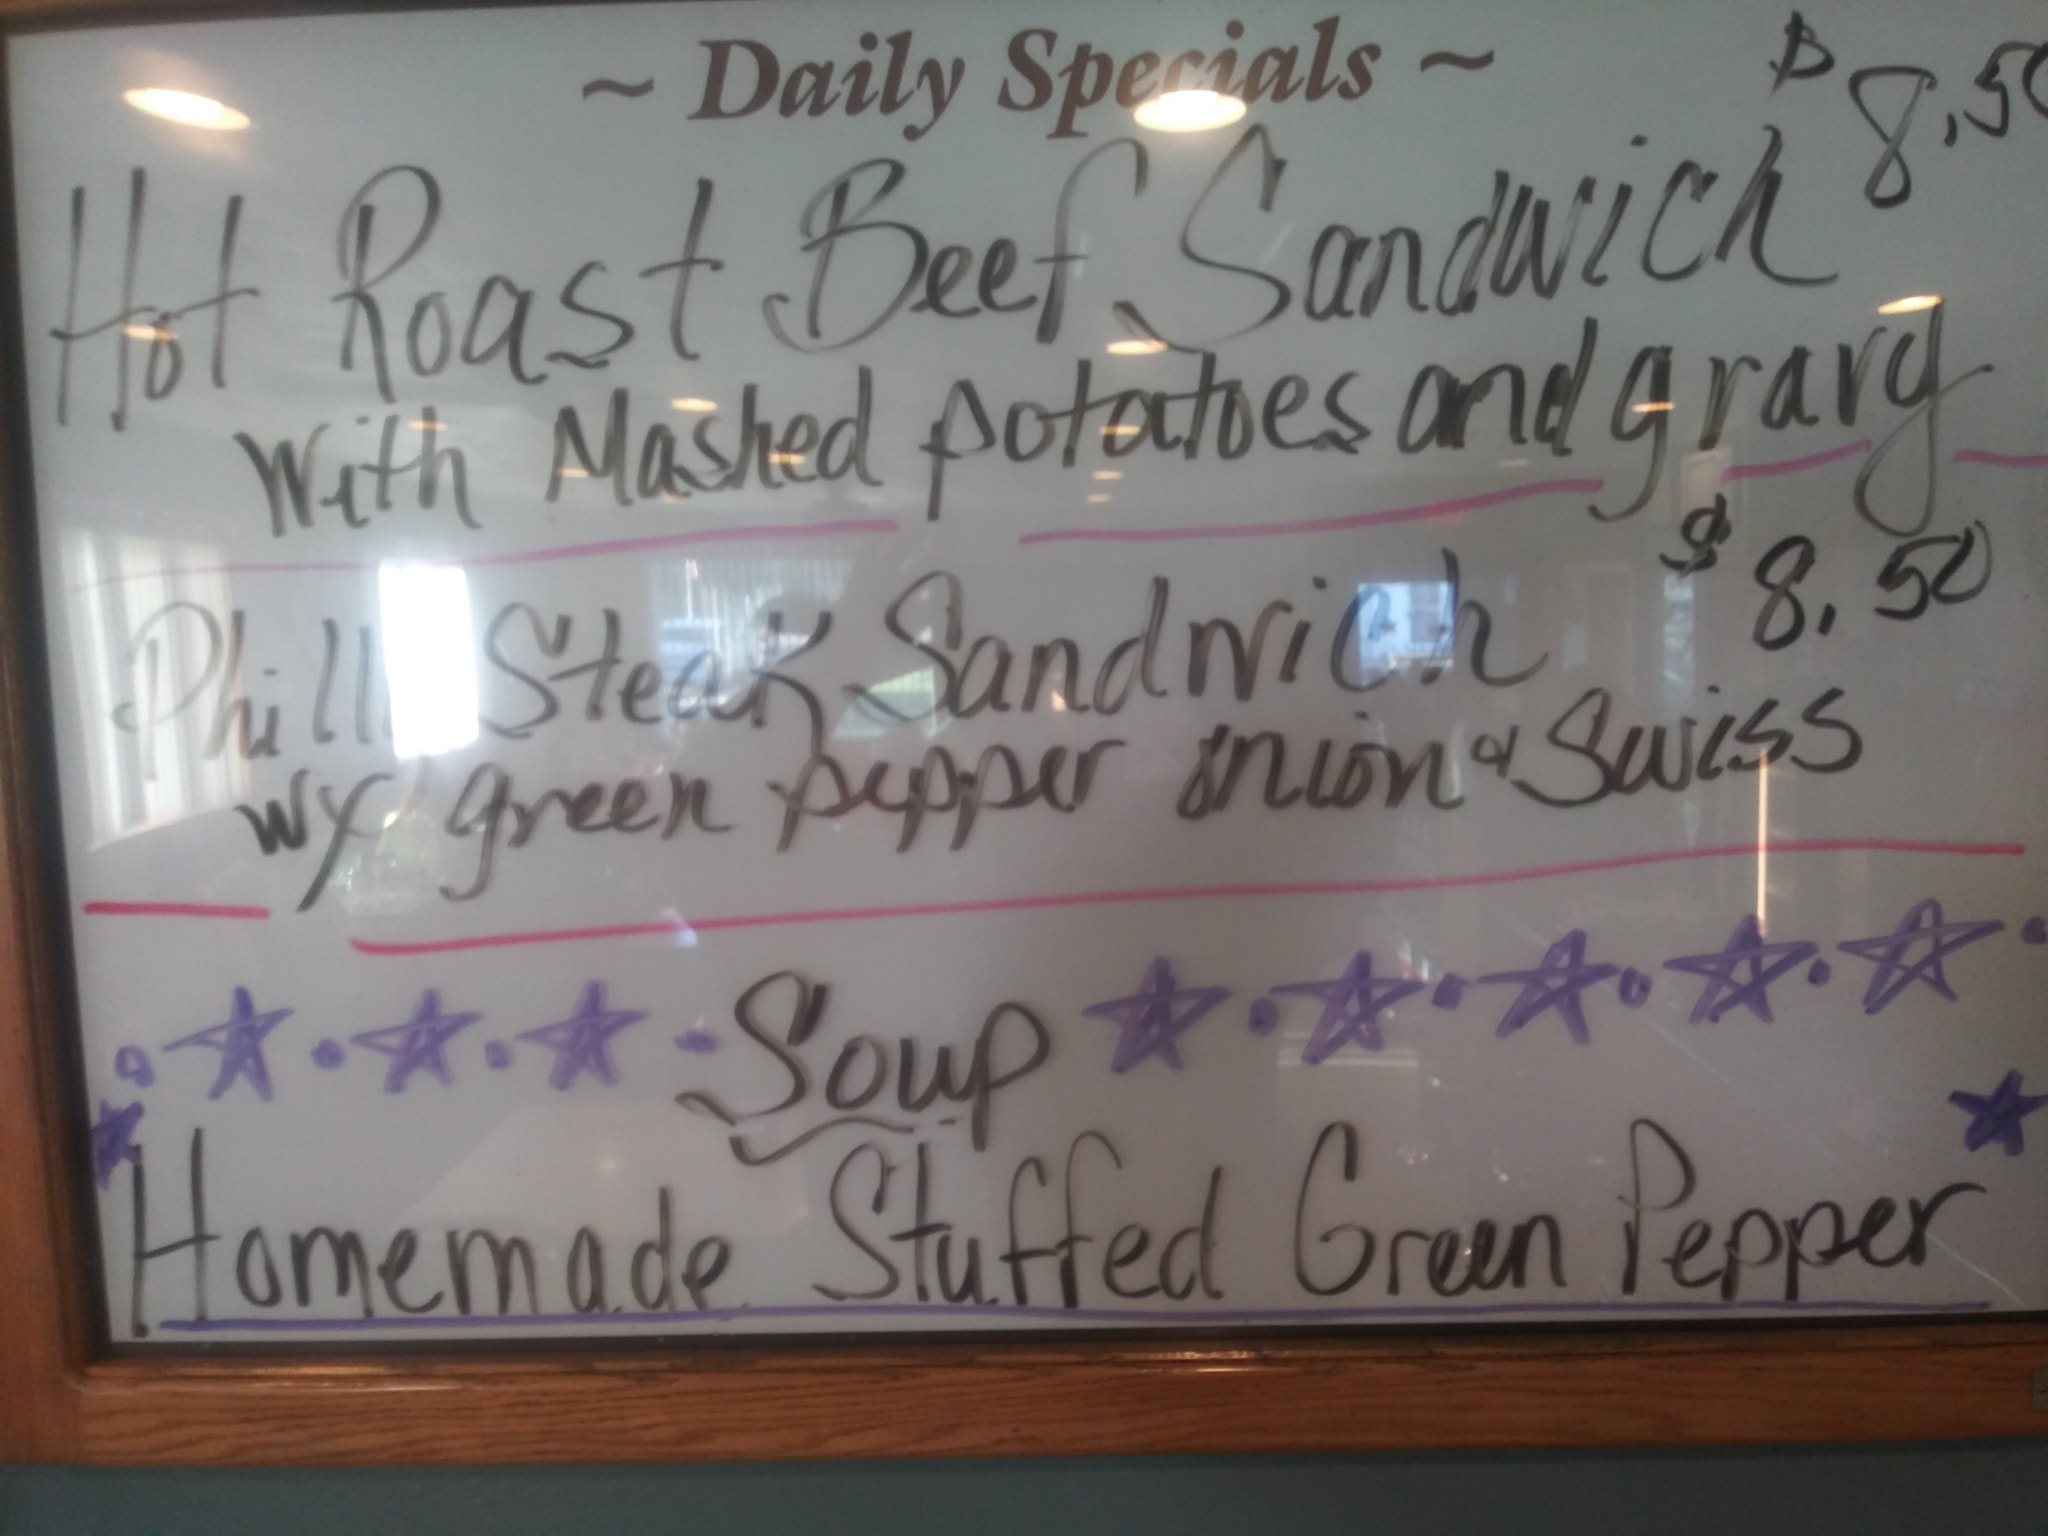 ~ Daily Specials ~
$8.50
Hot Roast Beef Sandwich
With Mashed potatoes and gravy
$8.50
Steak Sandwich
w/ green pepper onion & Swiss
Soup
Homemade Stuffed Green Pepper